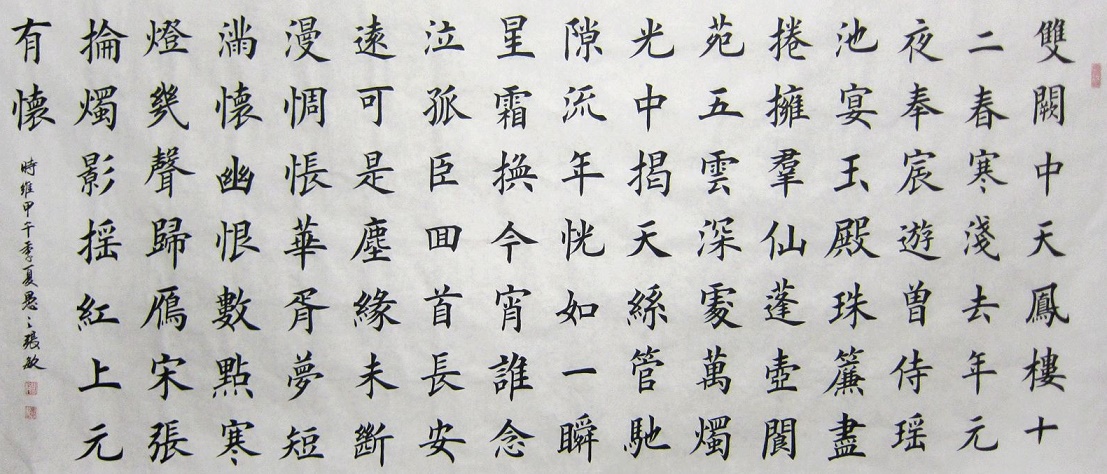 雙闕中天鳳樓十
二春寒淺去年元
夜奉宸遊曾侍瑶
池宴玉殿珠簾盡
捲擁羣仙蓬壺閬
苑五雲深處萬燭
光中揭天絲管馳
隙流年恍如一瞬
星霜換今宵誰念
泣孤臣囬首長安
遠可是塵緣未斷
漫惆悵華胥夢短
滿懷幽恨數點寒
燈幾聲歸鴈宋張
掄燭影摇紅上元
有懷
時維甲午季夏張敏